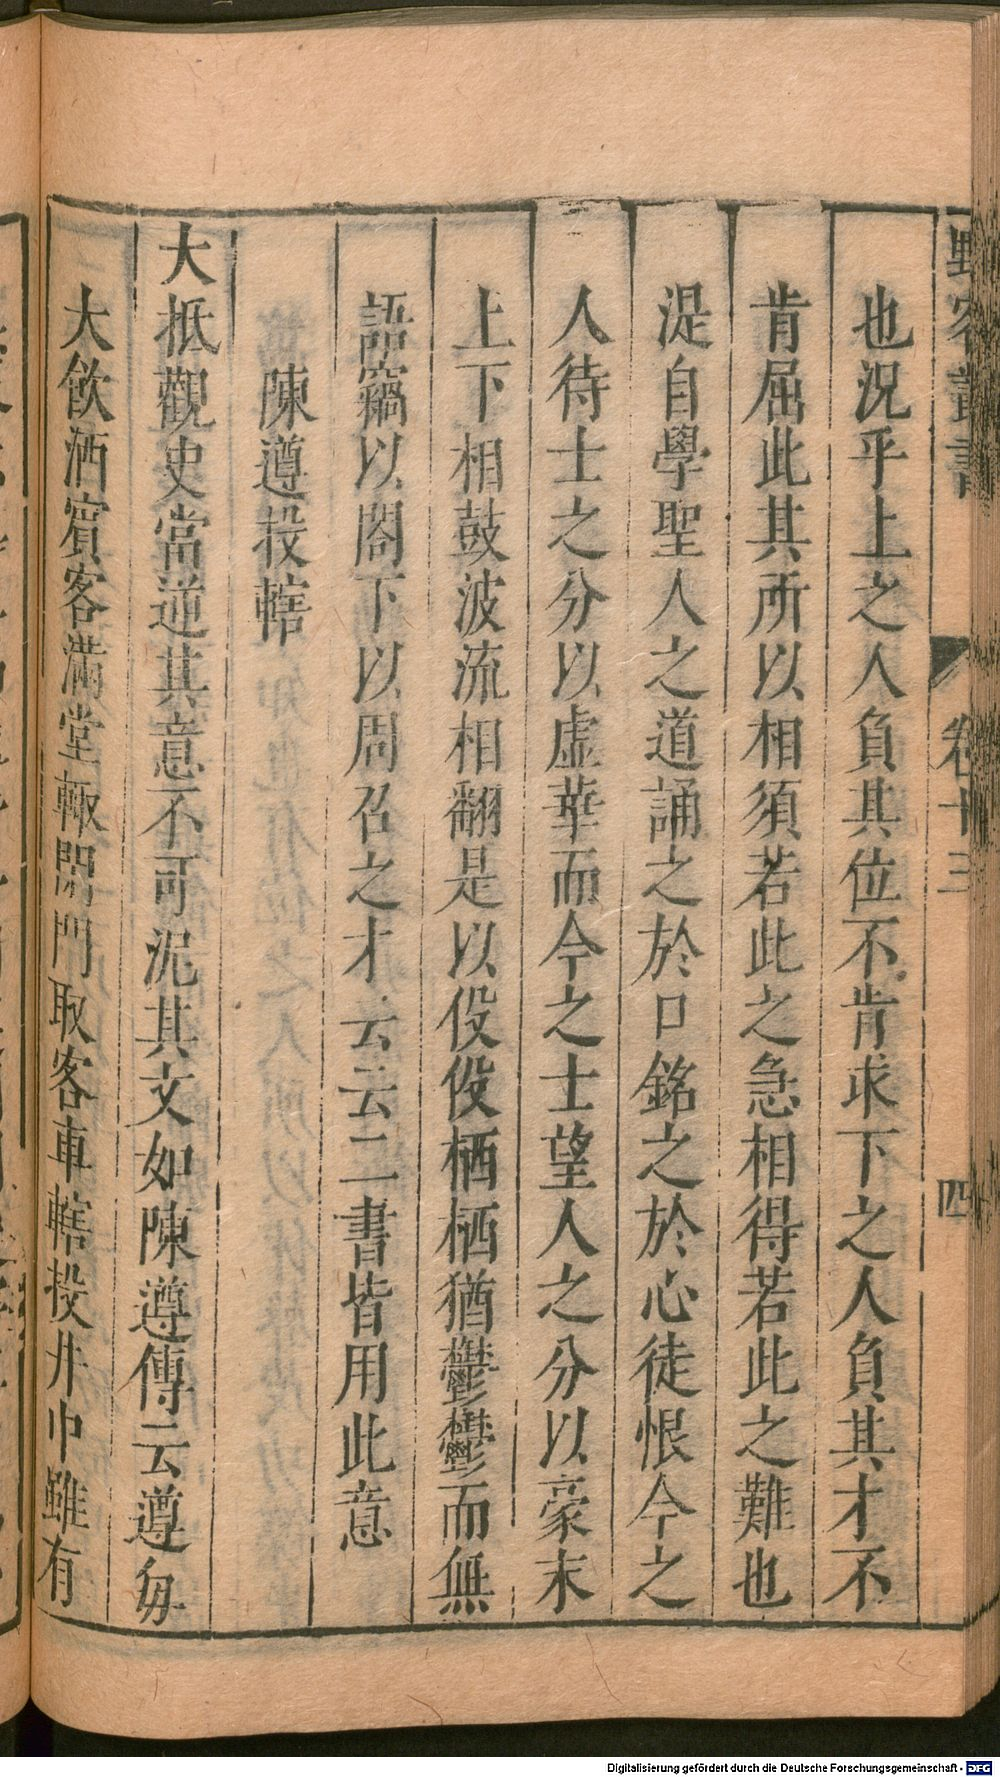 野客叢書
卷十三
四
也況乎上之人負其位不肯求下之人負其才不
肯屈此其所以相須若此之急相得若此之難也
湜自學聖人之道誦之於口銘之於心徒恨今之
人待士之分以虛華而今之士望人之分以豪末
上下相鼓波流相翻是以役役栖栖猶鬱鬱而無
語竊以閤下以周召之才云云二書皆用此意
陳遵投轄
大抵觀史當逆其意不可泥其文如陳遵傳云遵每
大飲酒賓客滿堂輙閉門取客車轄投井中雖有
Digitalisierung gefördert durch die Deutsche Forschungsgemeinschaft - DFG